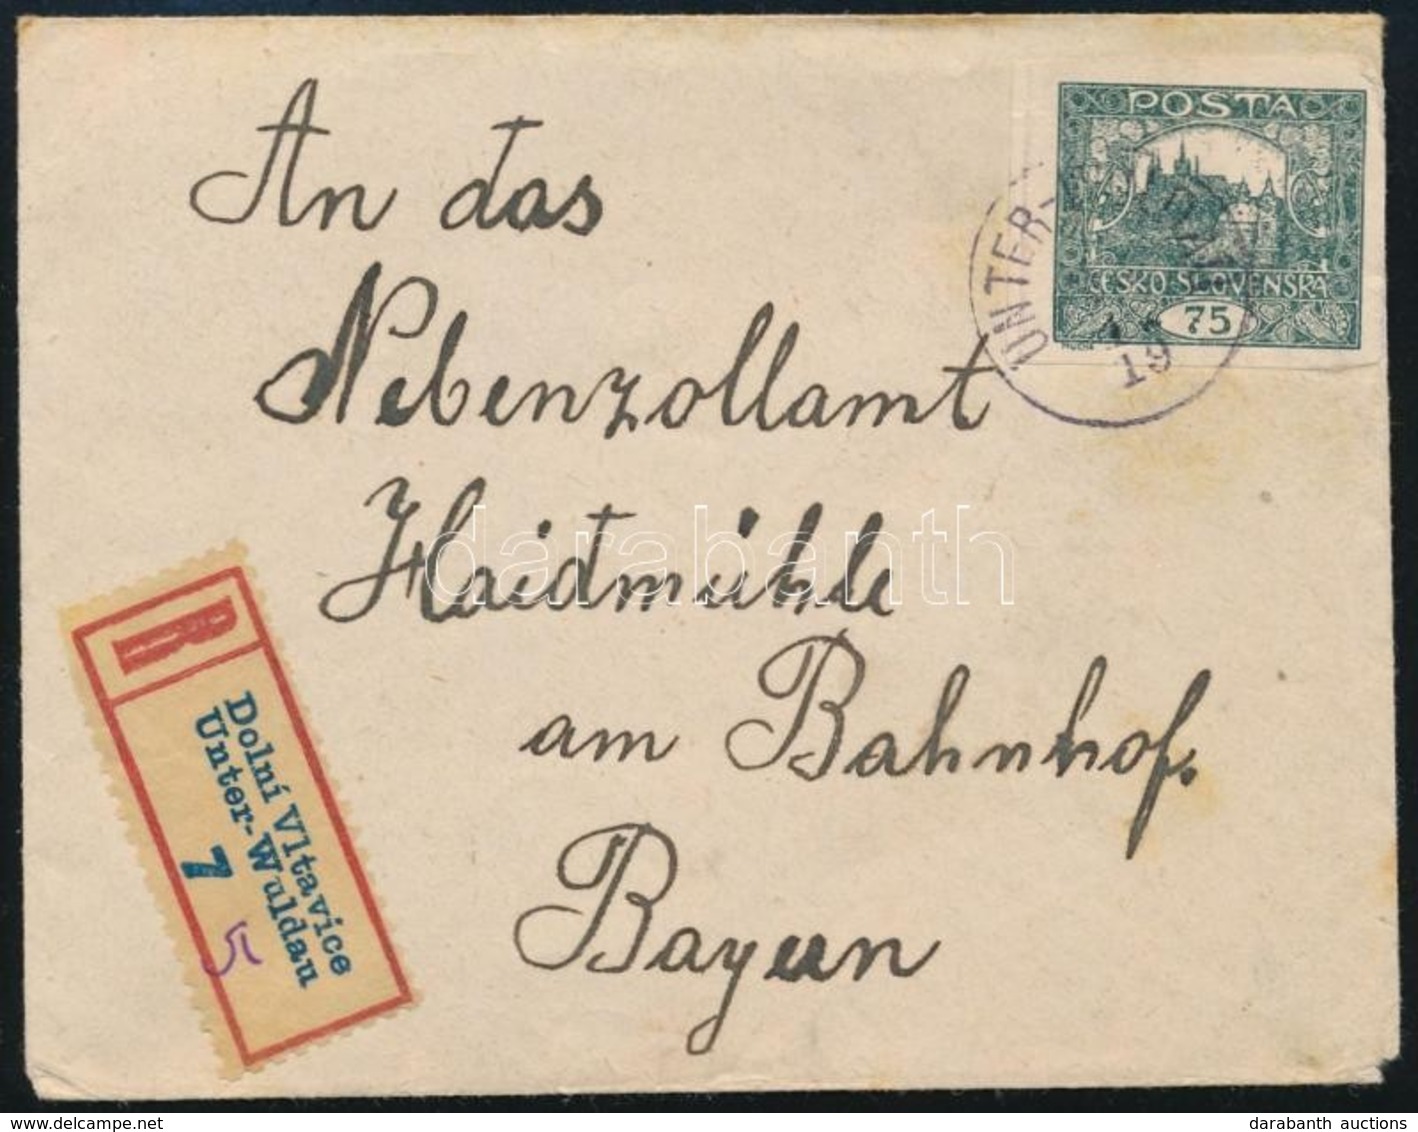 An das
Nebenzollamt
Haidmühle
am Bahnhof.
Bayern
POSTA
ČESKO SLOVENSKÁ
75
MUCHA
UNTER-
19
R
Dolní Vltavice
Unter-Wuldau
7
5
darabanth
darabanth auctions